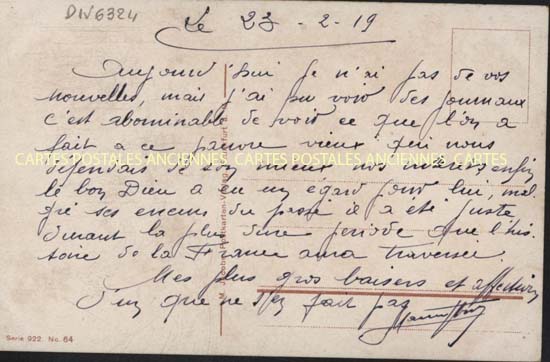 DIV6324
Le 23-2-19
Aujourd'hui je n'ai pas de vos
nouvelles, mais j'ai pu voir des journaux
c'est abominable de voir ce que l'on a
fait a ce pauvre vieux qui nous
CARTES POSTALES ANCIENNES CARTES POSTALES ANCIENNES CARTES
défendais de son mieux nos enfin
le bon Dieu a eu un égard pour lui, mal
gré ses du passé il a été juste
durant la plus dure période que l'his
toire de la France aura traversée.
Mes plus gros baisers et affection
d'un que ne s'en fait pas
Serie 922. No. 64